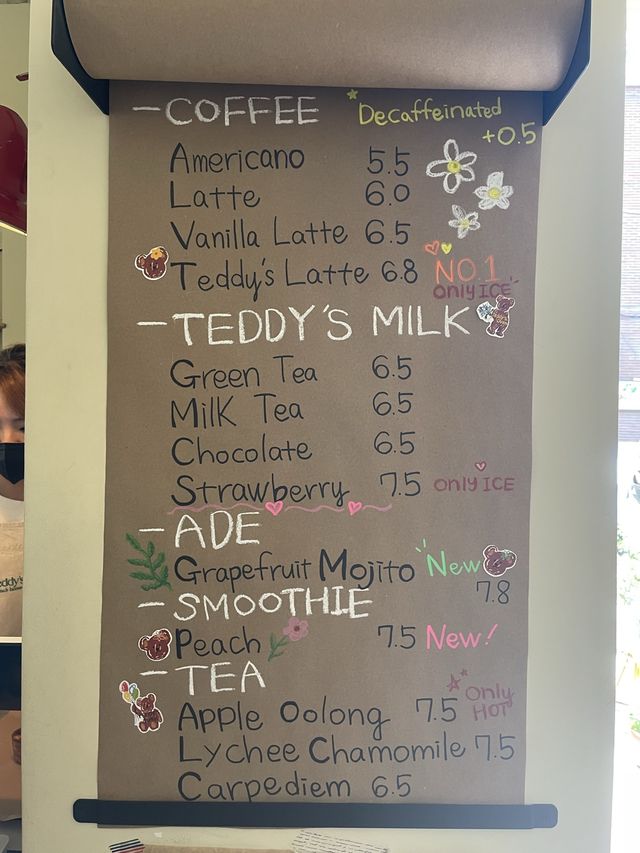 - COFFEE *Decaffeinated
+0.5
Americano 5.5
Latte 6.0
Vanilla Latte 6.5
Teddy's Latte 6.8 NO.1
only ICE
- TEDDY'S MILK
Green Tea 6.5
Milk Tea 6.5
Chocolate 6.5
Strawberry 7.5 only ICE
- ADE
Grapefruit Mojito New
7.8
- SMOOTHIE
Peach 7.5 New!
- TEA
Apple Oolong 7.5 Only HOT
Lychee Chamomile 7.5
Carpediem 6.5